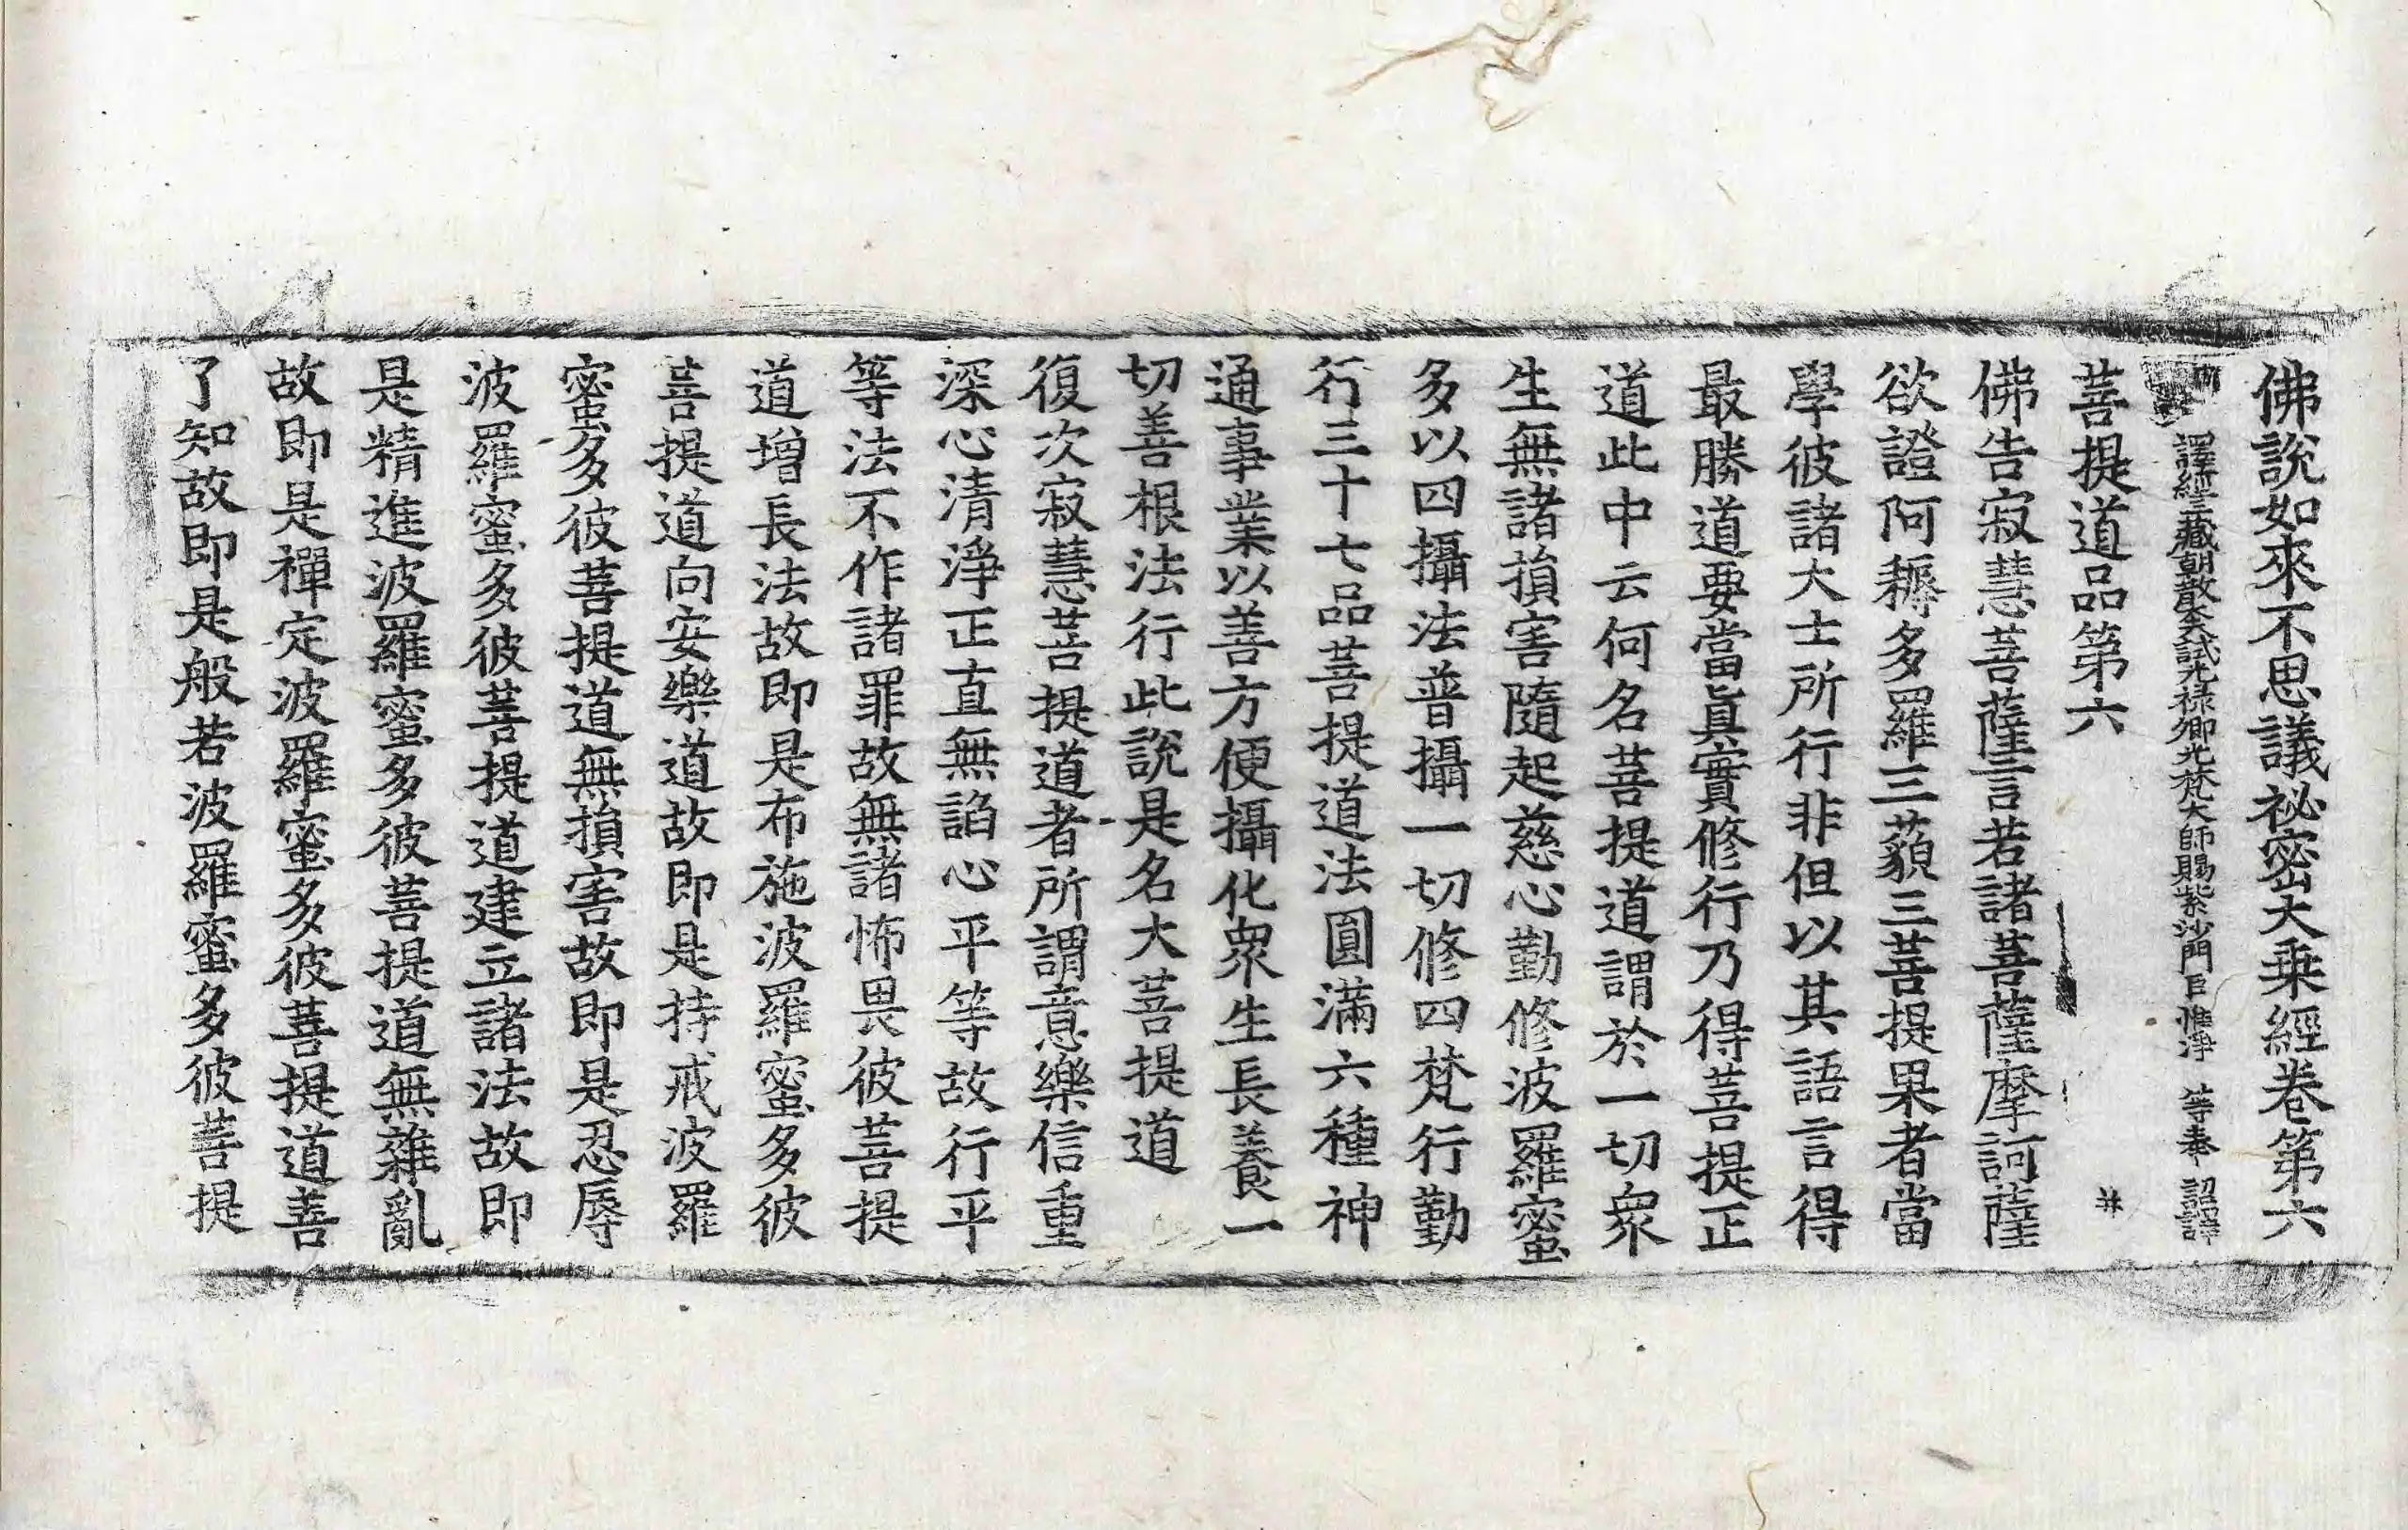 佛說如來不思議祕密大乘經卷第六
譯經三藏朝散大夫試光祿卿光梵大師賜紫沙門臣惟淨 等奉 詔譯
菩提道品第六
佛告寂慧菩薩言若諸菩薩摩訶薩
欲證阿耨多羅三藐三菩提果者當
學彼諸大士所行非但以其語言得
最勝道要當眞實修行乃得菩提正
道此中云何名菩提道謂於一切衆
生無諸損害隨起慈心勤修波羅蜜
多以四攝法普攝一切修四梵行勤
行三十七品菩提道法圓滿六種神
通事業以善方便攝化衆生長養一
切善根法行此說是名大菩提道
復次寂慧菩提道者所謂意樂信重
深心清淨正直無諂心平等故行平
等法不作諸罪故無諸怖畏彼菩提
道增長法故即是布施波羅蜜多彼
菩提道向安樂道故即是持戒波羅
蜜多彼菩提道無損害故即是忍辱
波羅蜜多彼菩提道建立諸法故即
是精進波羅蜜多彼菩提道無雜亂
故即是禪定波羅蜜多彼菩提道善
了知故即是般若波羅蜜多彼菩提